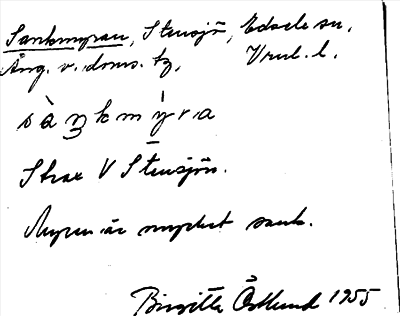 Sankmyran, Stensjö, Edsele sn,
Ång. v. doms. tg. Vrul. l.
sàŋkmýra
Strax V Stensjön.
Myren är mycket sank.
Birgitta Östlund 1955